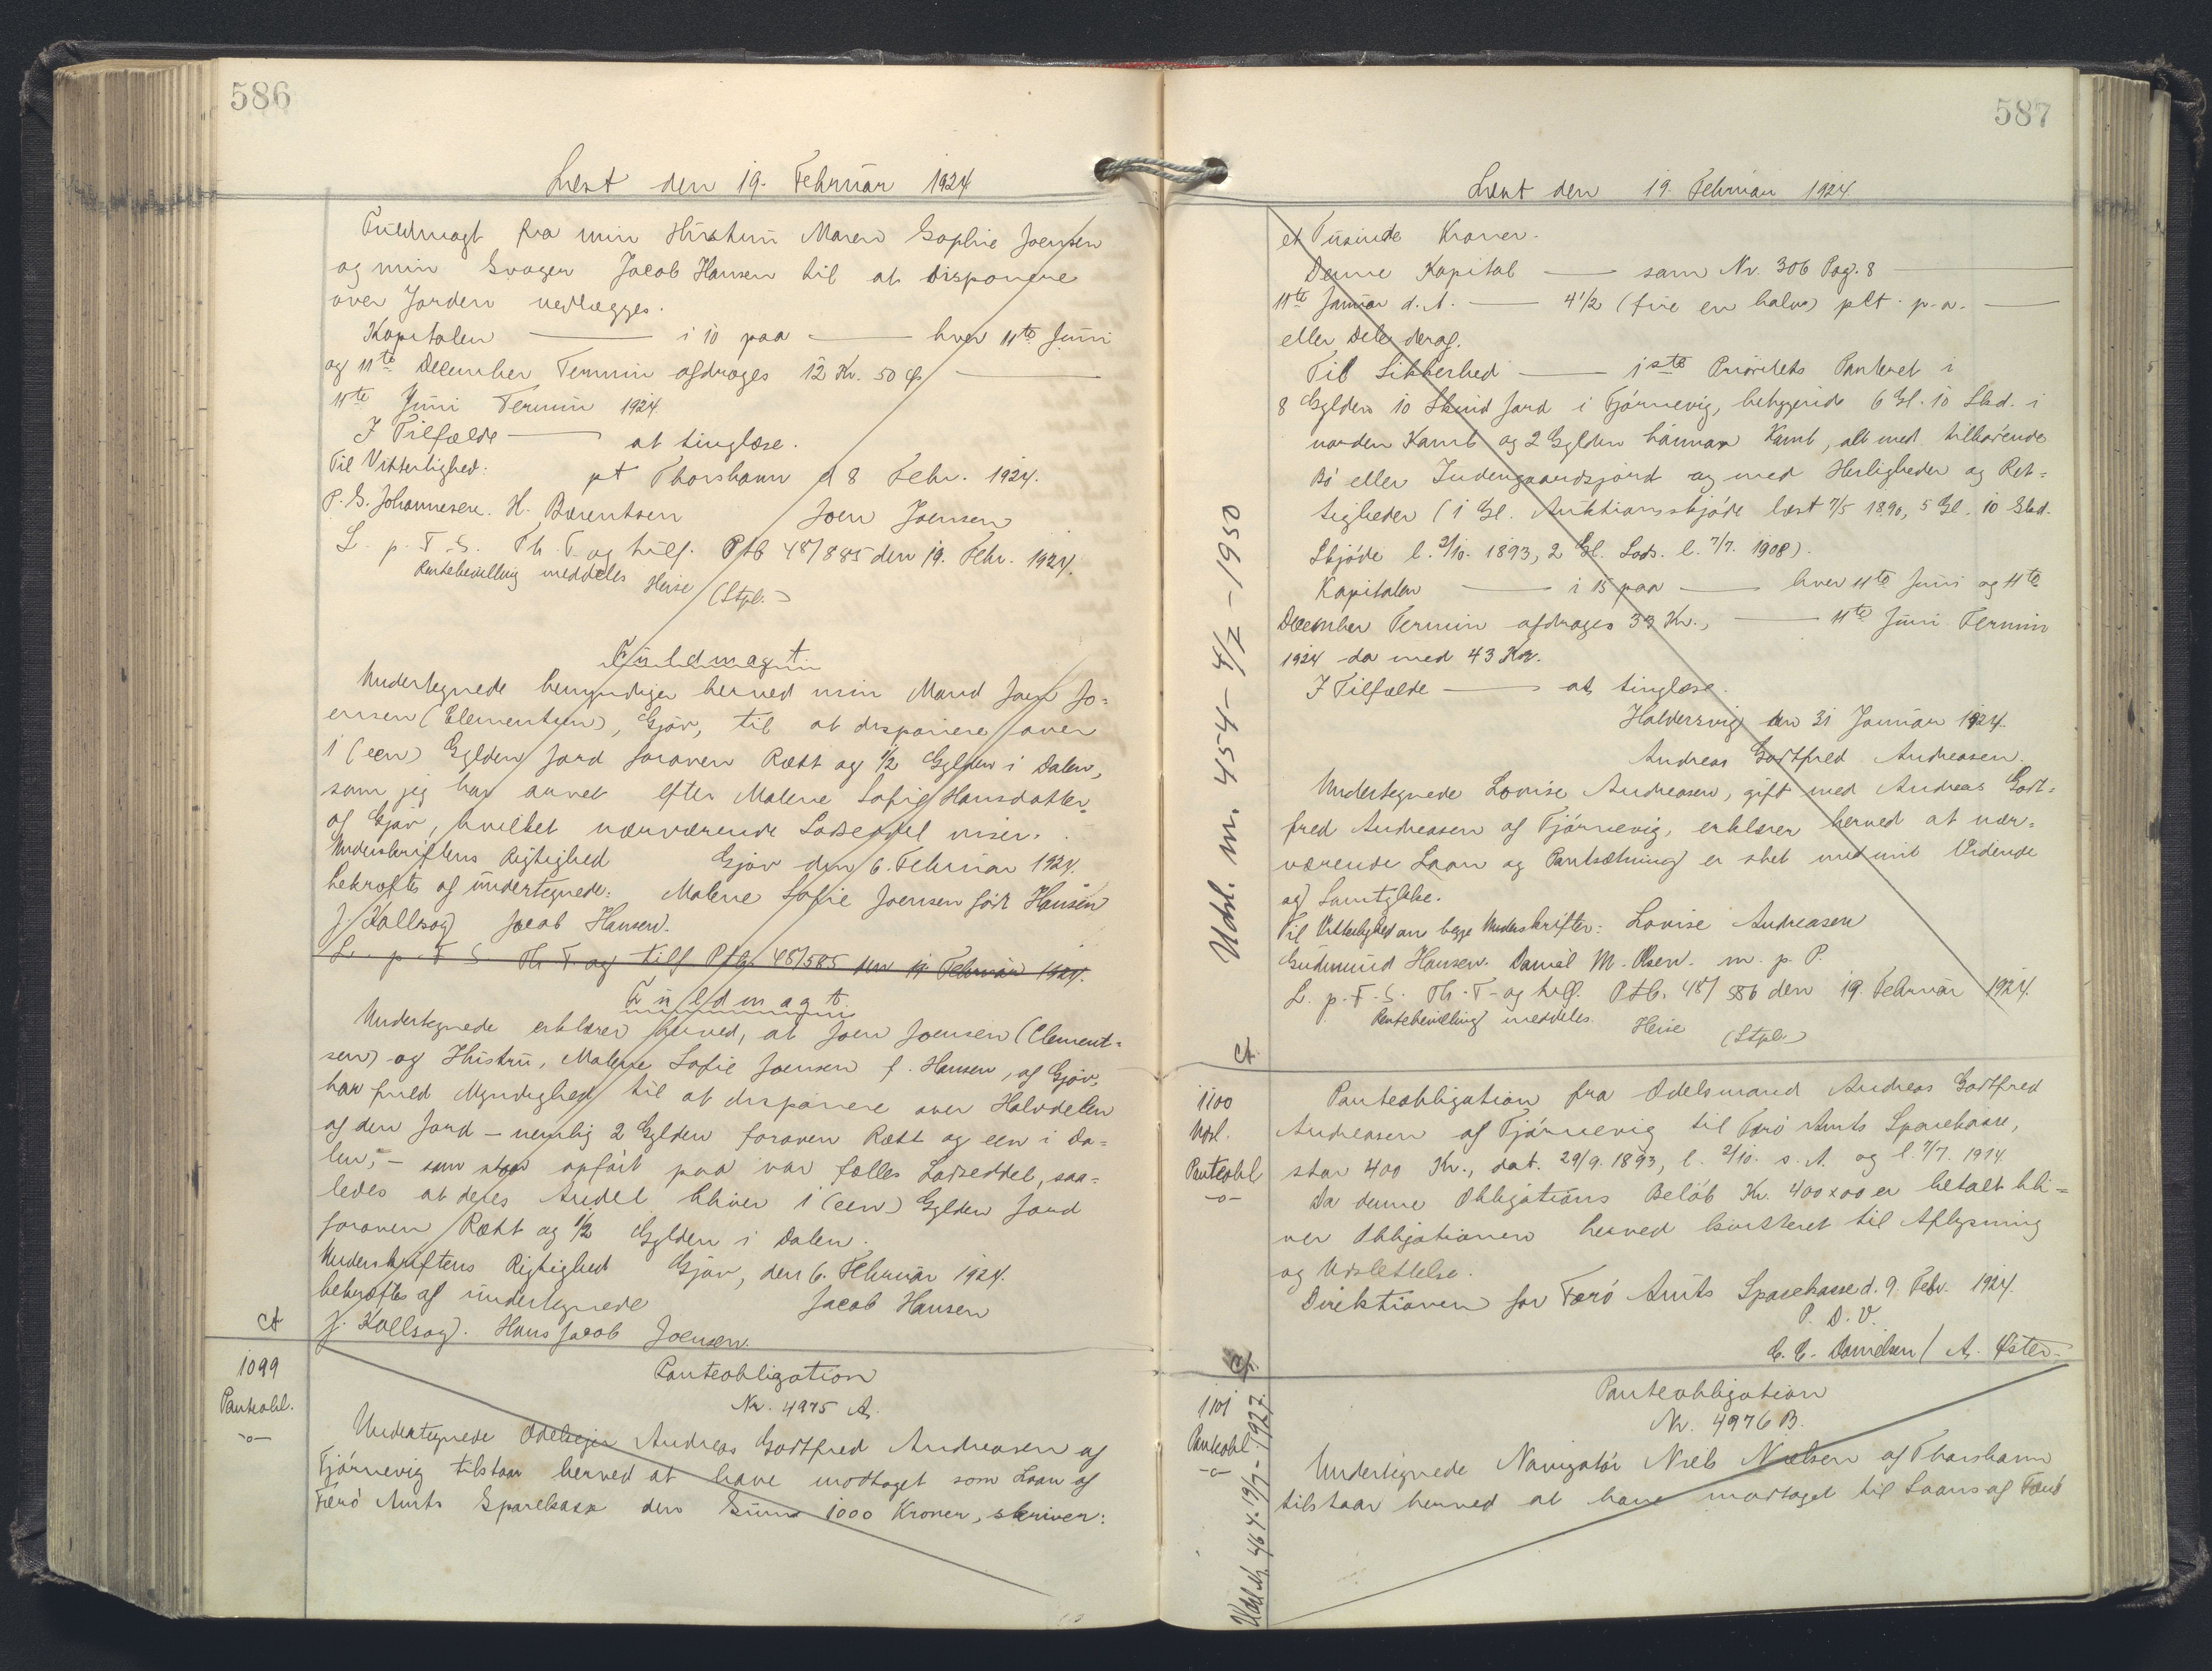 586
Læst den 19. Februar 1924
Fuldmagt fra min Hustru Maren Sophie Joensen
og min Svoger Jacob Hansen til at disponere
over Jorden vedlægges.
Kapitalen — i 10 paa — hver 11te Juni
og 11te December Termin afdrages 12 Kr. 50 Ø —
11te Juni Termin 1924.
I Tilfælde — at tinglæse.
Til Vitterlighed: pt Thorshavn d 8 Febr. 1924.
P. S. Johannesen. H. Berentsen Joen Joensen
L. p. F. S. Th. T. og hilf. Ptb 48/885 den 19. Febr. 1924.
Rentebevilling meddeles Heise (Stpl.)
Fuldmagt
Undertegnede bemyndiger herved min Mand Joen Jo=
ensen (Clementsen), Gjov, til at disponere over
1 (een) Gylden Jord foroven Rætt og 1/2 Gylden i Dalen,
som jeg har arvet efter Malene Sofie Hansdatter
af Gjov, hvilket nærværende Lodseddel viser.
Underskriftens Rigtighed Gjov den 6. Februar 1924.
bekræftes af undertegnede: Malene Sofie Joensen født Hansen
J. Kallsoy Jacob Hansen.
L. p. F S Th T og hilf Ptb 48/585 den 19 Februar 1924.
Fuldmagt.
Undertegnede erklærer herved, at Joen Joensen (Clement=
sen) og Hustru, Malene Sofie Joensen f. Hansen, af Gjov,
har fuld Myndighed til at disponere over Halvdelen
af den Jord – nemlig 2 Gylden foroven Rætt og een i Da=
len, – som staar opført paa vor fælles Lodseddel, saa=
ledes at deres Andel bliver 1 (een) Gylden Jord
foroven Rætt og 1/2 Gylden i Dalen.
Underskriftens Rigtighed Gjov, den 6. Februar 1924.
bekræftes af undertegnede Jacob Hansen
J. Kallsoy. Hans Jacob Joensen.
1099
Panteobl.
-o-
Panteobligation
Nr. 4975 A.
Undertegnede Odelsejer Andreas Godtfred Andreasen af
Tjørnevig tilstaar herved at have modtaget som Laan af
Færø Amts Sparekasse den Sum 1000 Kroner, skriver:
587
Læst den 19. Februar 1924.
et Tusinde Kroner.
Denne Kapital — som Nr. 306 Pag. 8 —
11te Januar d. A. — 4 1/2 (fire en halv) pCt. p. a. —
eller Dele deraf.
Til Sikkerhed — 1ste Prioritets Panteret i
8 Gylden 10 Skind Jord i Tjørnevig, beliggende 6 Gl. 10 Skd. i
norden Kamb og 2 Gylden hannan Kamb, alt med tilhørende
Bø eller Indengaardsjord og med Herligheder og Ret=
tigheder (1 Gl. Auktionsskjøde læst 7/5 1890, 5 Gl. 10 Skd.
Skjøde l. 2/10. 1893, 2 Gl. Lods. l. 7/7. 1908).
Kapitalen — i 15 paa — hver 11te Juni og 11te
December Termin afdrages 33 Kr., — 11te Juni Termin
1924 da med 43 Kr.
I Tilfælde — at tinglæse.
Haldersvig den 31 Januar 1924.
Andreas Godtfred Andreasen.
Undertegnede Lovise Andreasen, gift med Andreas Godt=
fred Andreasen af Tjørnevig, erklærer herved at nær=
værende Laan og Pantsætning er sket med mit Vidende
og Samtykke.
Til Vitterlighed om begge Underskrifter: Lovise Andreasen
Gudmund Hansen. Daniel M. Olsen. m. p. P.
L. p. F. S. Th. T. og hilf. Ptb. 48/886 den 19 Februar 1924.
Rentebevilling meddeles. Heise (Stpl.)
Udsl. nr. 454 – 4/7 – 1950
1100
Udsl.
Panteobl
-o-
Panteobligation fra Odelsmand Andreas Godtfred
Andreasen af Tjørnevig til Færø Amts Sparekasse,
stor 400 Kr., dat. 29/9. 1893, l. 2/10. s. A. og l. 7/7. 1914.
Da denne Obligations Beløb Kr. 400 x 00 er betalt bli=
ver Obligationen herved kvitteret til Aflysning
og Udslettelse.
Direktionen for Færø Amts Sparekasse d. 9. Febr. 1924.
P. D. V.
C. C. Danielsen / A. Øster-
1101
Panteobl.
-o-
Udsl. nr. 467. 19/7 - 1927.
Panteobligation
Nr. 4976 B.
Undertegnede Navigatør Niels Nielsen af Thorshavn
tilstaar herved at have modtaget til Laans af Færø